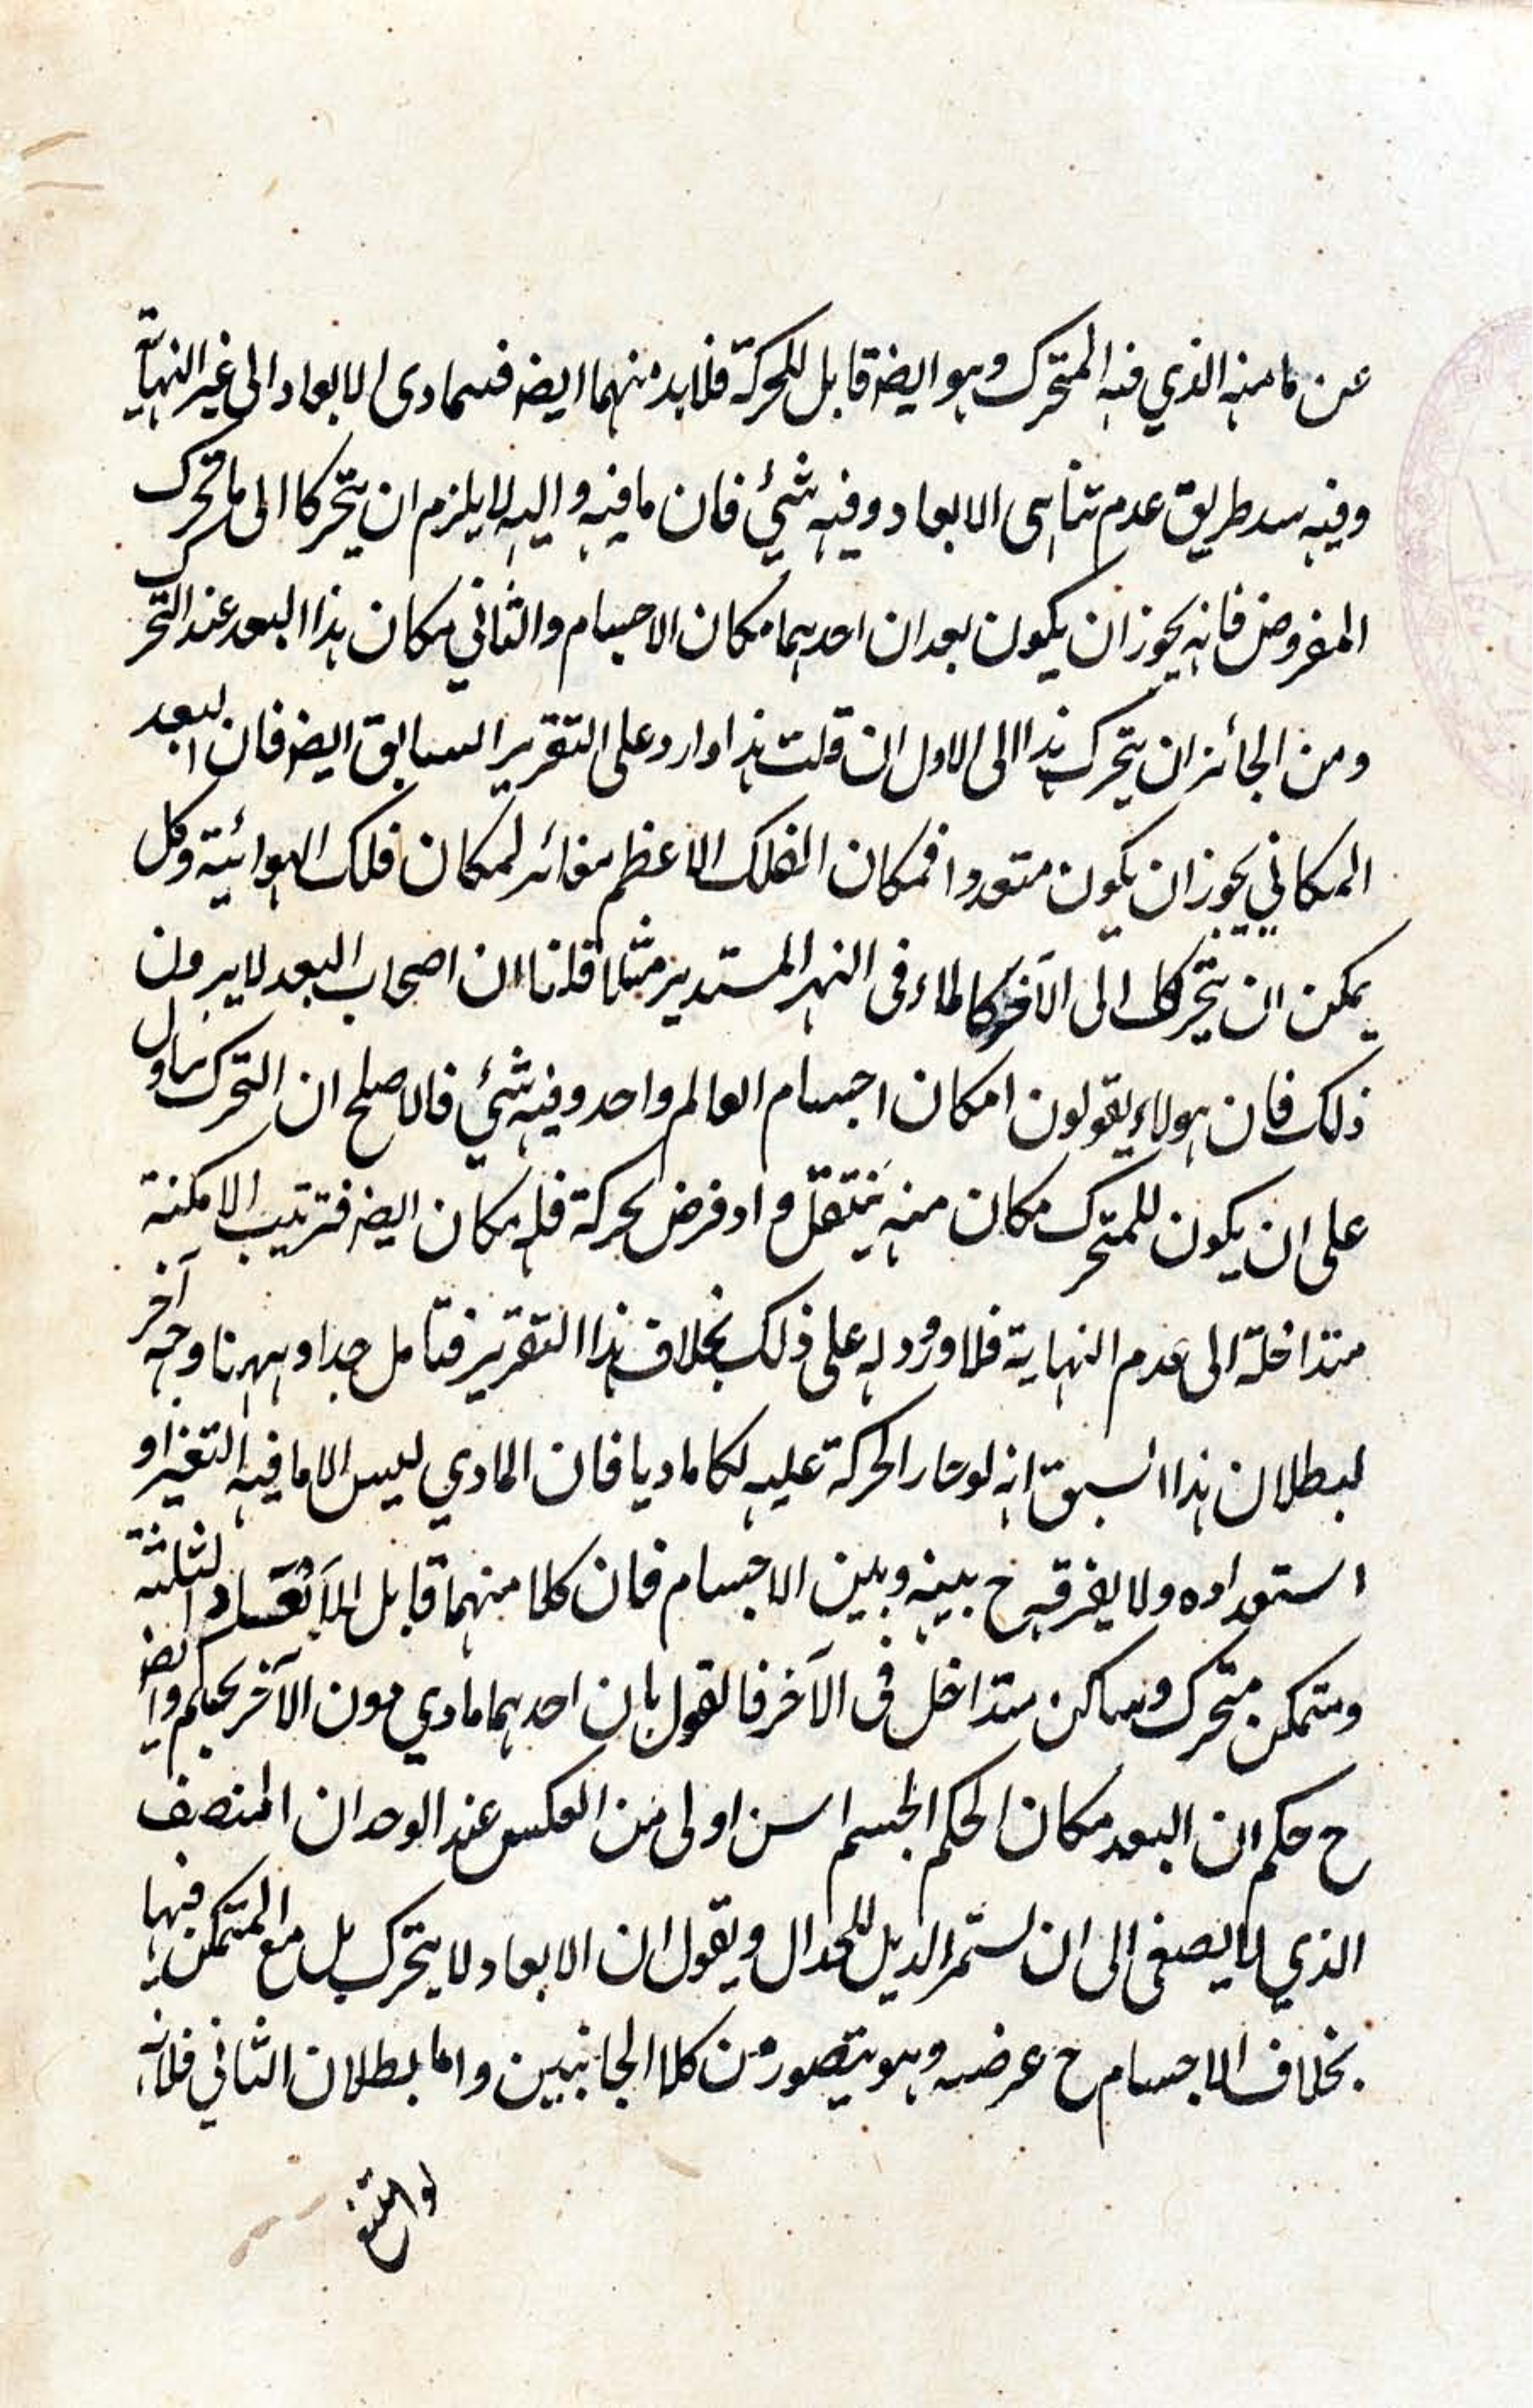 عن ما منه الذي فيه المتحرك وهو ايضه قابل للحركة فلا بد منهما ايضه فيتمادى الابعاد الى غير النهاية
وفيه سد طريق عدم تناهى الابعاد وفيه شئ فان ما فيه واليه لا يلزم ان يتحركا الى ما تحرك
المفروض فانه يجوز ان يكون بعدان احدهما مكان الاجسام والثاني مكان هذا البعد عند التحرك
ومن الجائز ان يتحرك هذا الى الاول ان قلت هذا وارد على التقرير السابق ايضه فان البعد
المكاني يجوز ان يكون متعددا فمكان الفلك الاعظم مغائر لمكان فلك الهوائية وكل
يمكن ان يتحرك الى الآخر كالماء فى النهر المستدير مثلا قلنا ان اصحاب البعد لا يرون
ذلك فان هولاء يقولون امكان اجسام العالم واحد وفيه شئ فالاصلح ان التحرك يدل
على ان يكون للمتحرك مكان منه ينتقل واذ فرض بحركة فله مكان ايضه فترتيب الامكنة
متداخلة الى عدم النهاية فلا ورود له على ذلك بخلاف هذا التقرير فتامل جدا وههنا وجه آخر
لبطلان هذا السبق انه لو جاز الحركة عليه لكا ماديا فان المادي ليس الا ما فيه التغير او
استعداده ولا يفرق ح بينه وبين الاجسام فان كلا منهما قابل للابعاد الثلثة
ومتمكن متحرك وساكن متداخل فى الآخر فالقول بان احدهما مادي دون الآخر تحكم وايضه
ح حكم ان البعد مكان الحكم الجسم اسن اولى من العكس عند الوجدان المنصف
الذي لا يصغى الى ان يستمر الذيل للجدال ويقول ان الابعاد لا يتحرك بل مع المتمكن فيها
بخلاف الاجسام ح عرضه وهو يتصور من كلا الجانبين واما بطلان الثاني فلانه